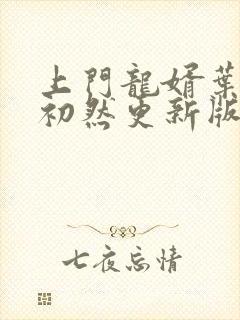 上門龍婿葉
初然更新版
七夜忘情